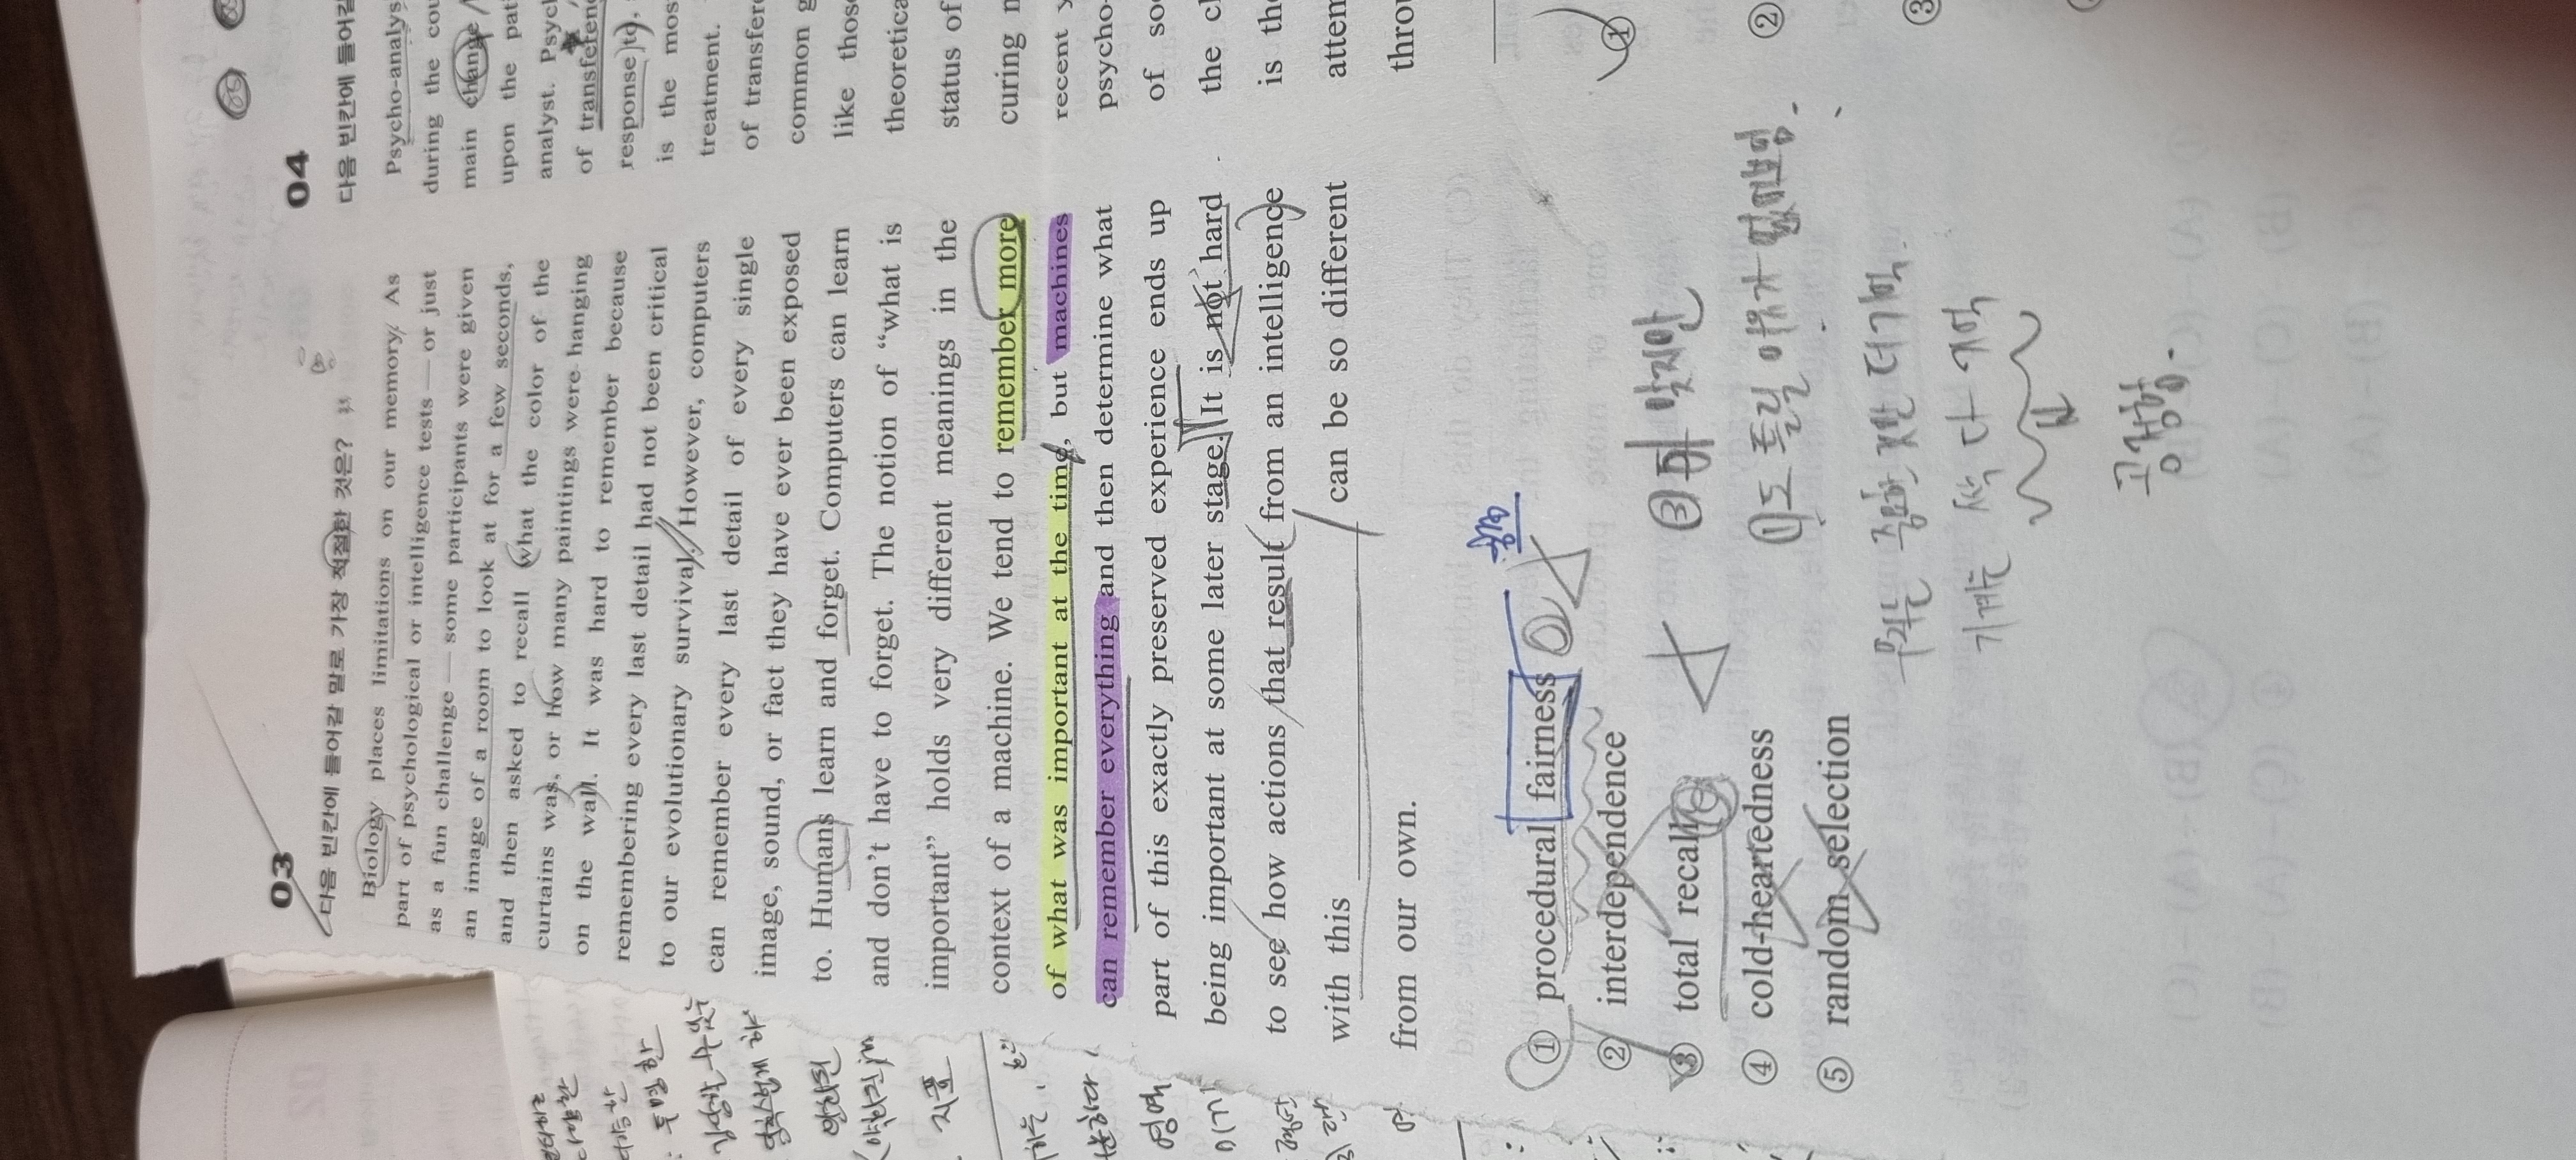 03
다음 빈칸에 들어갈 말로 가장 적절한 것은?
Biology places limitations on our memory. As
part of psychological or intelligence tests — or just
as a fun challenge — some participants were given
an image of a room to look at for a few seconds,
and then asked to recall what the color of the
curtains was, or how many paintings were hanging
on the wall. It was hard to remember because
remembering every last detail had not been critical
to our evolutionary survival. However, computers
can remember every last detail of every single
image, sound, or fact they have ever been exposed
to. Humans learn and forget. Computers can learn
and don't have to forget. The notion of “what is
important” holds very different meanings in the
context of a machine. We tend to remember more
of what was important at the time, but machines
can remember everything and then determine what
part of this exactly preserved experience ends up
being important at some later stage. It is not hard
to see how actions that result from an intelligence
with this can be so different
from our own.
① procedural fairness
② interdependence
③ total recall
④ cold-heartedness
⑤ random selection
공평
③ 왜 맞지 안
①도 틀릴 이유가 없어보임.
우리는 중요한 것만 더 기억
기계는 싹 다 기억
공평함.
04
다음 빈칸에 들어갈
Psycho-analys
during the cou
main change
upon the pat
analyst. Psych
of transferen
response) to),
is the mos
treatment.
of transfere
common g
like those
theoretica
status of
curing n
recent y
psycho-
of soc
the cl
is the
attem
throu
①
②
③
지표
영역